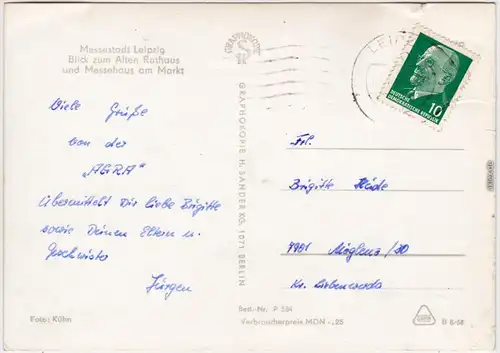 Messestadt Leipzig
Blick zum Alten Rathaus
und Messehaus am Markt
Viele Grüße
von der
„AGRA“
übermittelt Dir liebe Brigitte
sowie Deinen Eltern u.
Geschwister
Jürgen
Foto: Kühn
GRAPHOKOPIE H. SANDER KG. 1071 BERLIN
GRAPHOKOPIE
LEIPZ
DEUTSCHE
DEMOKRATISCHE REPUBLIK
10
Frl.
Brigitte
7901
Kr. Liebenwerda
Best.-Nr. P 584
Verbraucherpreis MDN -,25
B 6/68